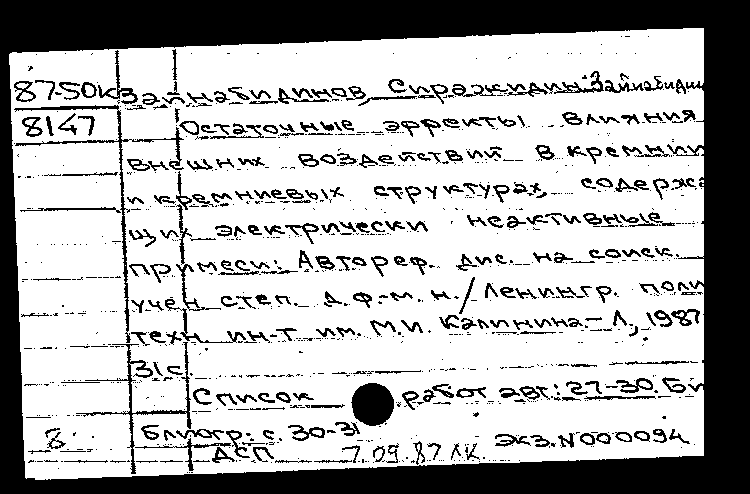 87-50к Зайнабидинов, Сиражидин Зайнабидин
8147 Остаточные эффекты влияния
внешних воздействий в кремнии
и кремниевых структурах, содержа
щих электрически неактивные
примеси: Автореф. дис. на соиск.
учен. степ. д. ф.-м. н. / Ленингр. поли
техн. ин-т им. М.И. Калинина.- Л., 1987
31 с.
Список работ авт.: 27-30. Би
8. блиогр.: с. 30-31
ДСП 7.09.87 ЛК. экз. N000094